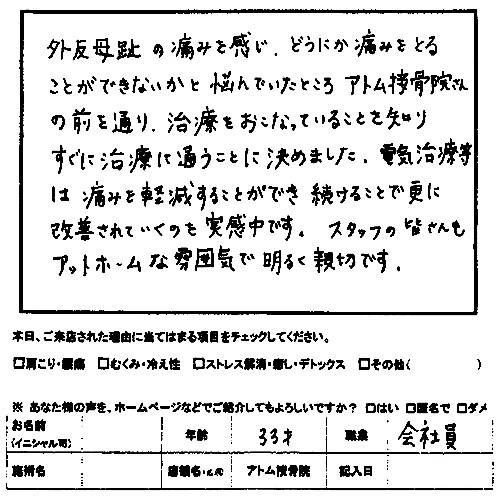 外反母趾の痛みを感じ、どうにか痛みをとる
ことができないかと悩んでいたところアトム接骨院さん
の前を通り、治療をおこなっていることを知り
すぐに治療に通うことに決めました。電気治療等
は痛みを軽減することができ続けることで更に
改善されていくのを実感中です。スタッフの皆さんも
アットホームな雰囲気で明るく親切です。
本日、ご来店された理由に当てはまる項目をチェックしてください。
□肩こり・腰痛 □むくみ・冷え性 □ストレス解消・癒し・デトックス □その他( )
※ あなた様の声を、ホームページなどでご紹介してもよろしいですか? □はい □匿名で □ダメ
お名前 (イニシャル可) 年齢 33才 職業 会社員
施術名 店舗名 アトム接骨院 記入日